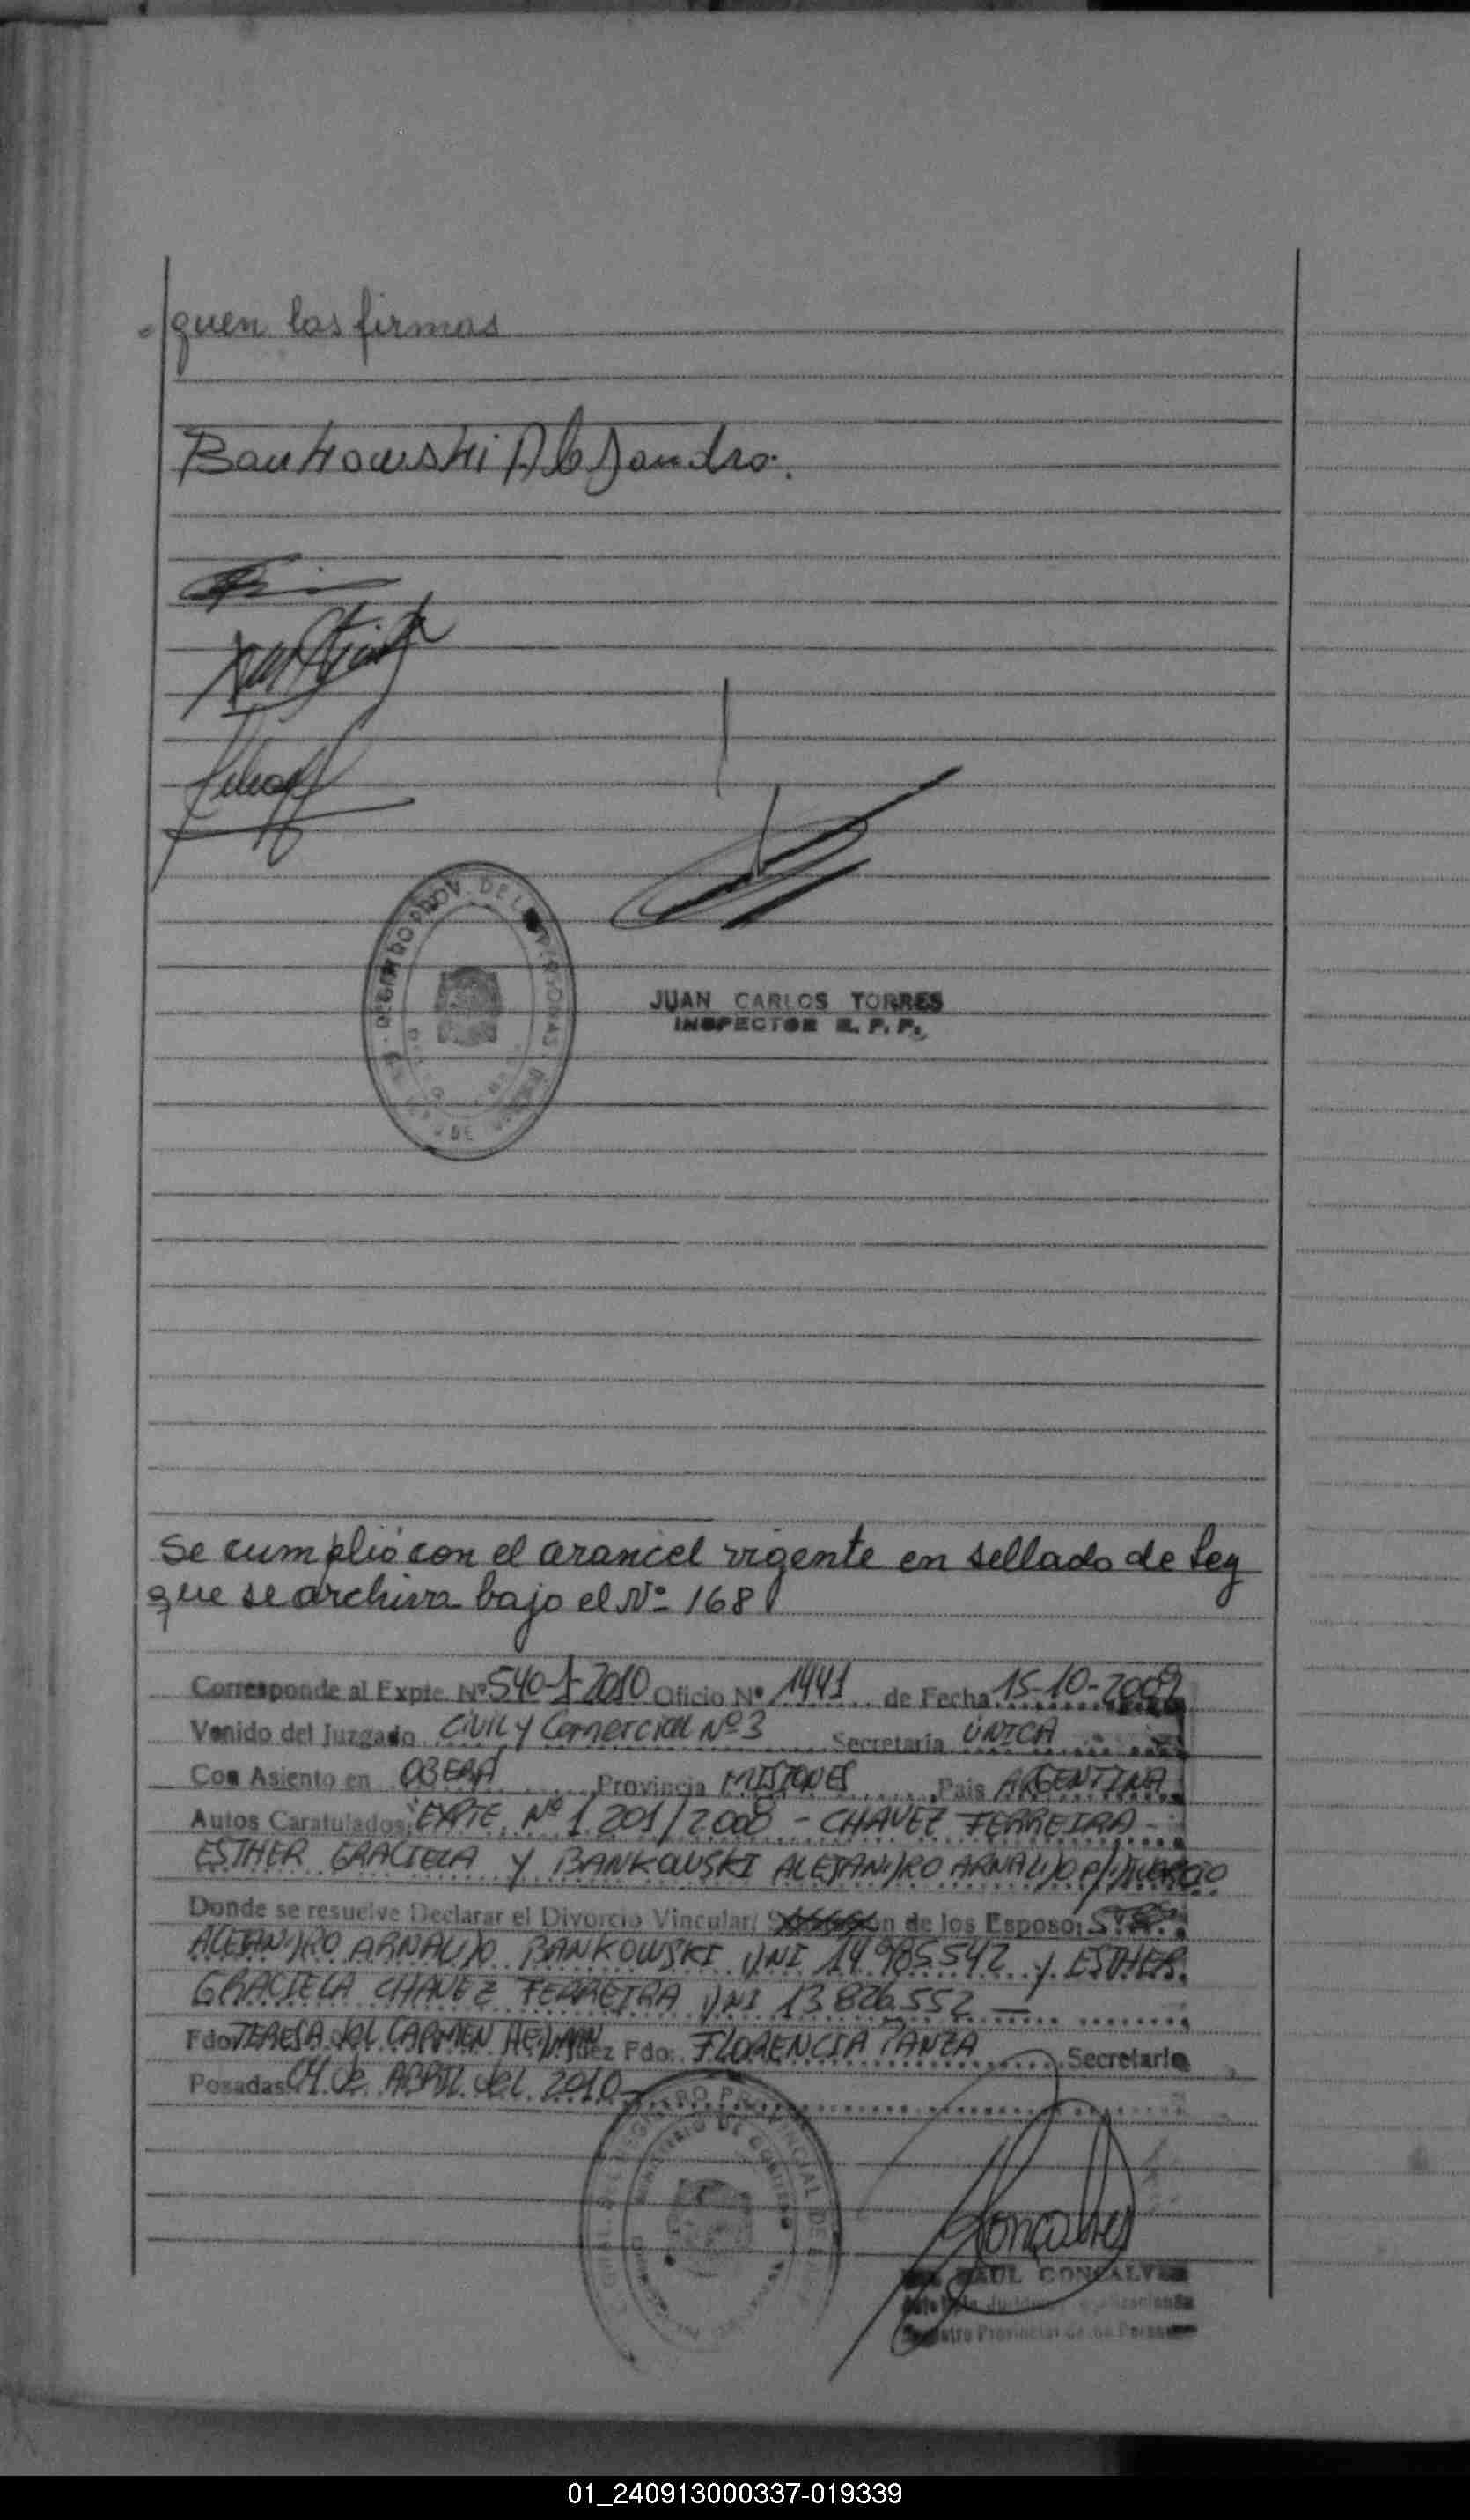 guen las firmas
Bankowski Alejandro.
JUAN CARLOS TORRES
INSPECTOR R. P. P.
Se cumplió con el arancel vigente en sellado de Ley
que se archiva bajo el Nº 168
Corresponde al Expte. Nº 540-J-2010 Oficio Nº 1441 de Fecha 15-10-2009
Venido del Juzgado CiViL y Comercial Nº 3 Secretaria ÚNICA
Con Asiento en OBERÁ Provincia MISIONES Pais ARGENTINA
Autos Caratulados: EXPTE Nº 1.201/2008 - CHAVEZ FERREIRA -
ESTHER GRACIELA Y BANKOWSKI ALEJANDRO ARNALDO P/DIVORCIO
Donde se resuelve Declarar el Divorcio Vincular/ de los Esposo:
ALEJANDRO ARNALDO BANKOWSKI DNI 14.985.542 Y ESTHER
GRACIELA CHAVEZ FERREIRA DNI 13.826.552 —
Fdo TERESA del CARMEN Fdo: FLORENCIA PANZA Secretario
Posadas 04 de ABRIL del 2010
RAUL GONCALVES
Registro Provincial de las Personas
01_240913000337-019339